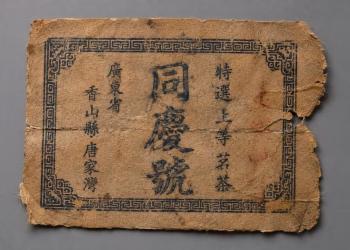 特選上等茗茶
同慶號
廣東省
香山縣唐家灣